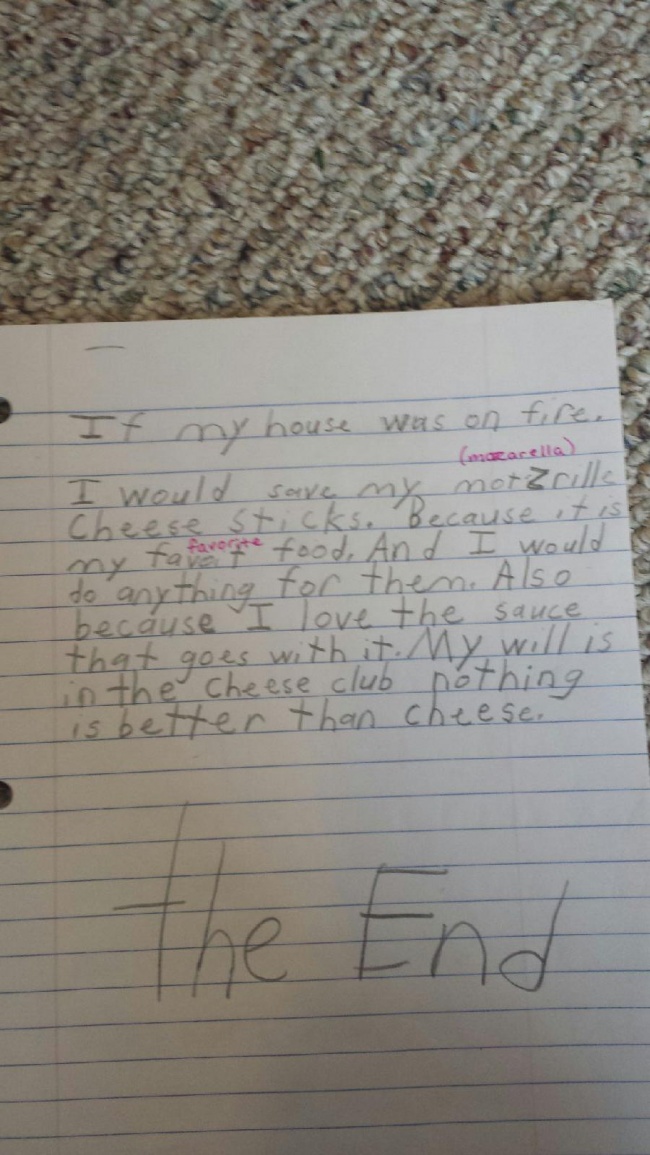 If my house was on fire.
(mozarella)
I would save my motzrille
Cheese sticks. Because it is
favorite
my favoit food. And I would
do anything for them. Also
because I love the sauce
that goes with it. My will is
in the cheese club nothing
is better than cheese.
the End